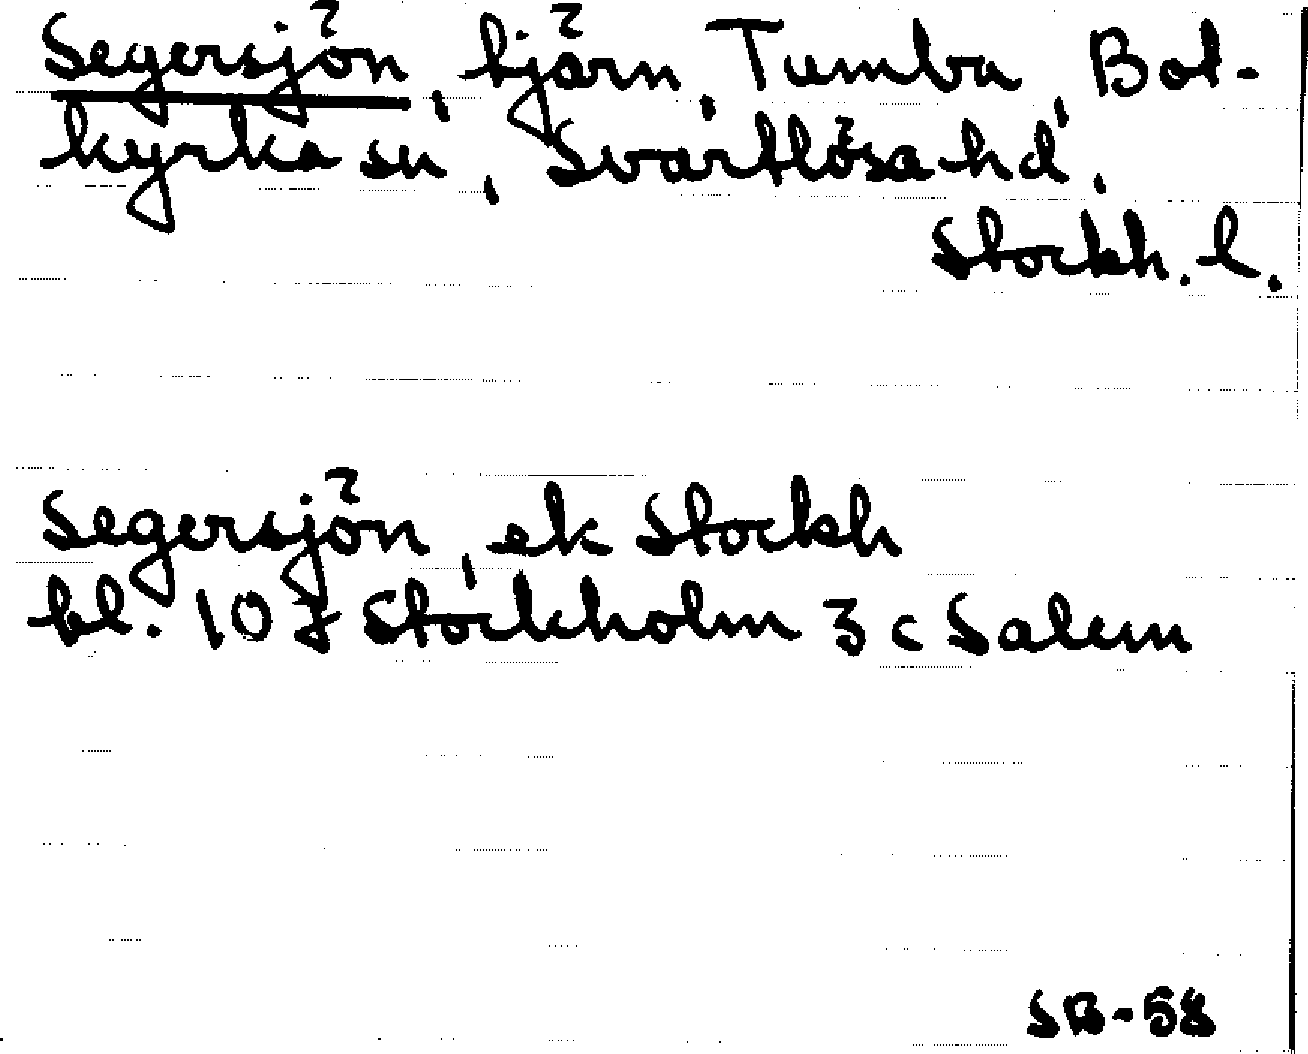 Segersjön, tjärn, Tumba, Bot-
kyrka sn, Svartlösa hd,
Stockh. l.
Segersjön, ek Stockh
bl. 10 I Stockholm 3 c Salem
SB-58